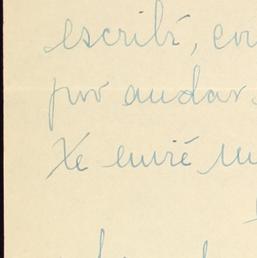 escribí, co
por andar
Te envié un